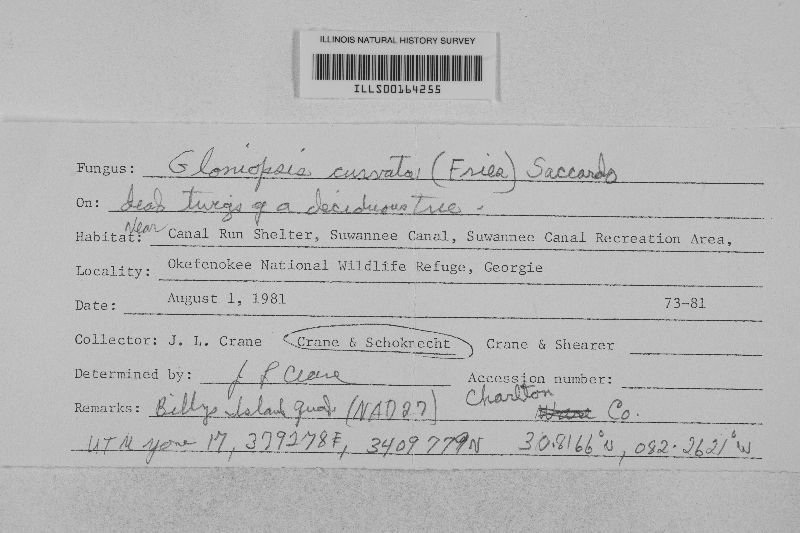 ILLINOIS NATURAL HISTORY SURVEY
ILLS00164255
Fungus: Gloniopsis curvata (Fries) Saccardo
On: dead twigs of a deciduous tree -
Near
Habitat: Canal Run Shelter, Suwannee Canal, Suwannee Canal Recreation Area,
Locality: Okefenokee National Wildlife Refuge, Georgie
Date: August 1, 1981 73-81
Collector: J. L. Crane Crane & Schokrecht Crane & Shearer
Determined by: J L Crane Accession number:
Remarks: Billys Island quad (NAD27) Charlton Co.
UTM zone 17, 379278E, 3409779N 30.8166°N, 082.2621°W